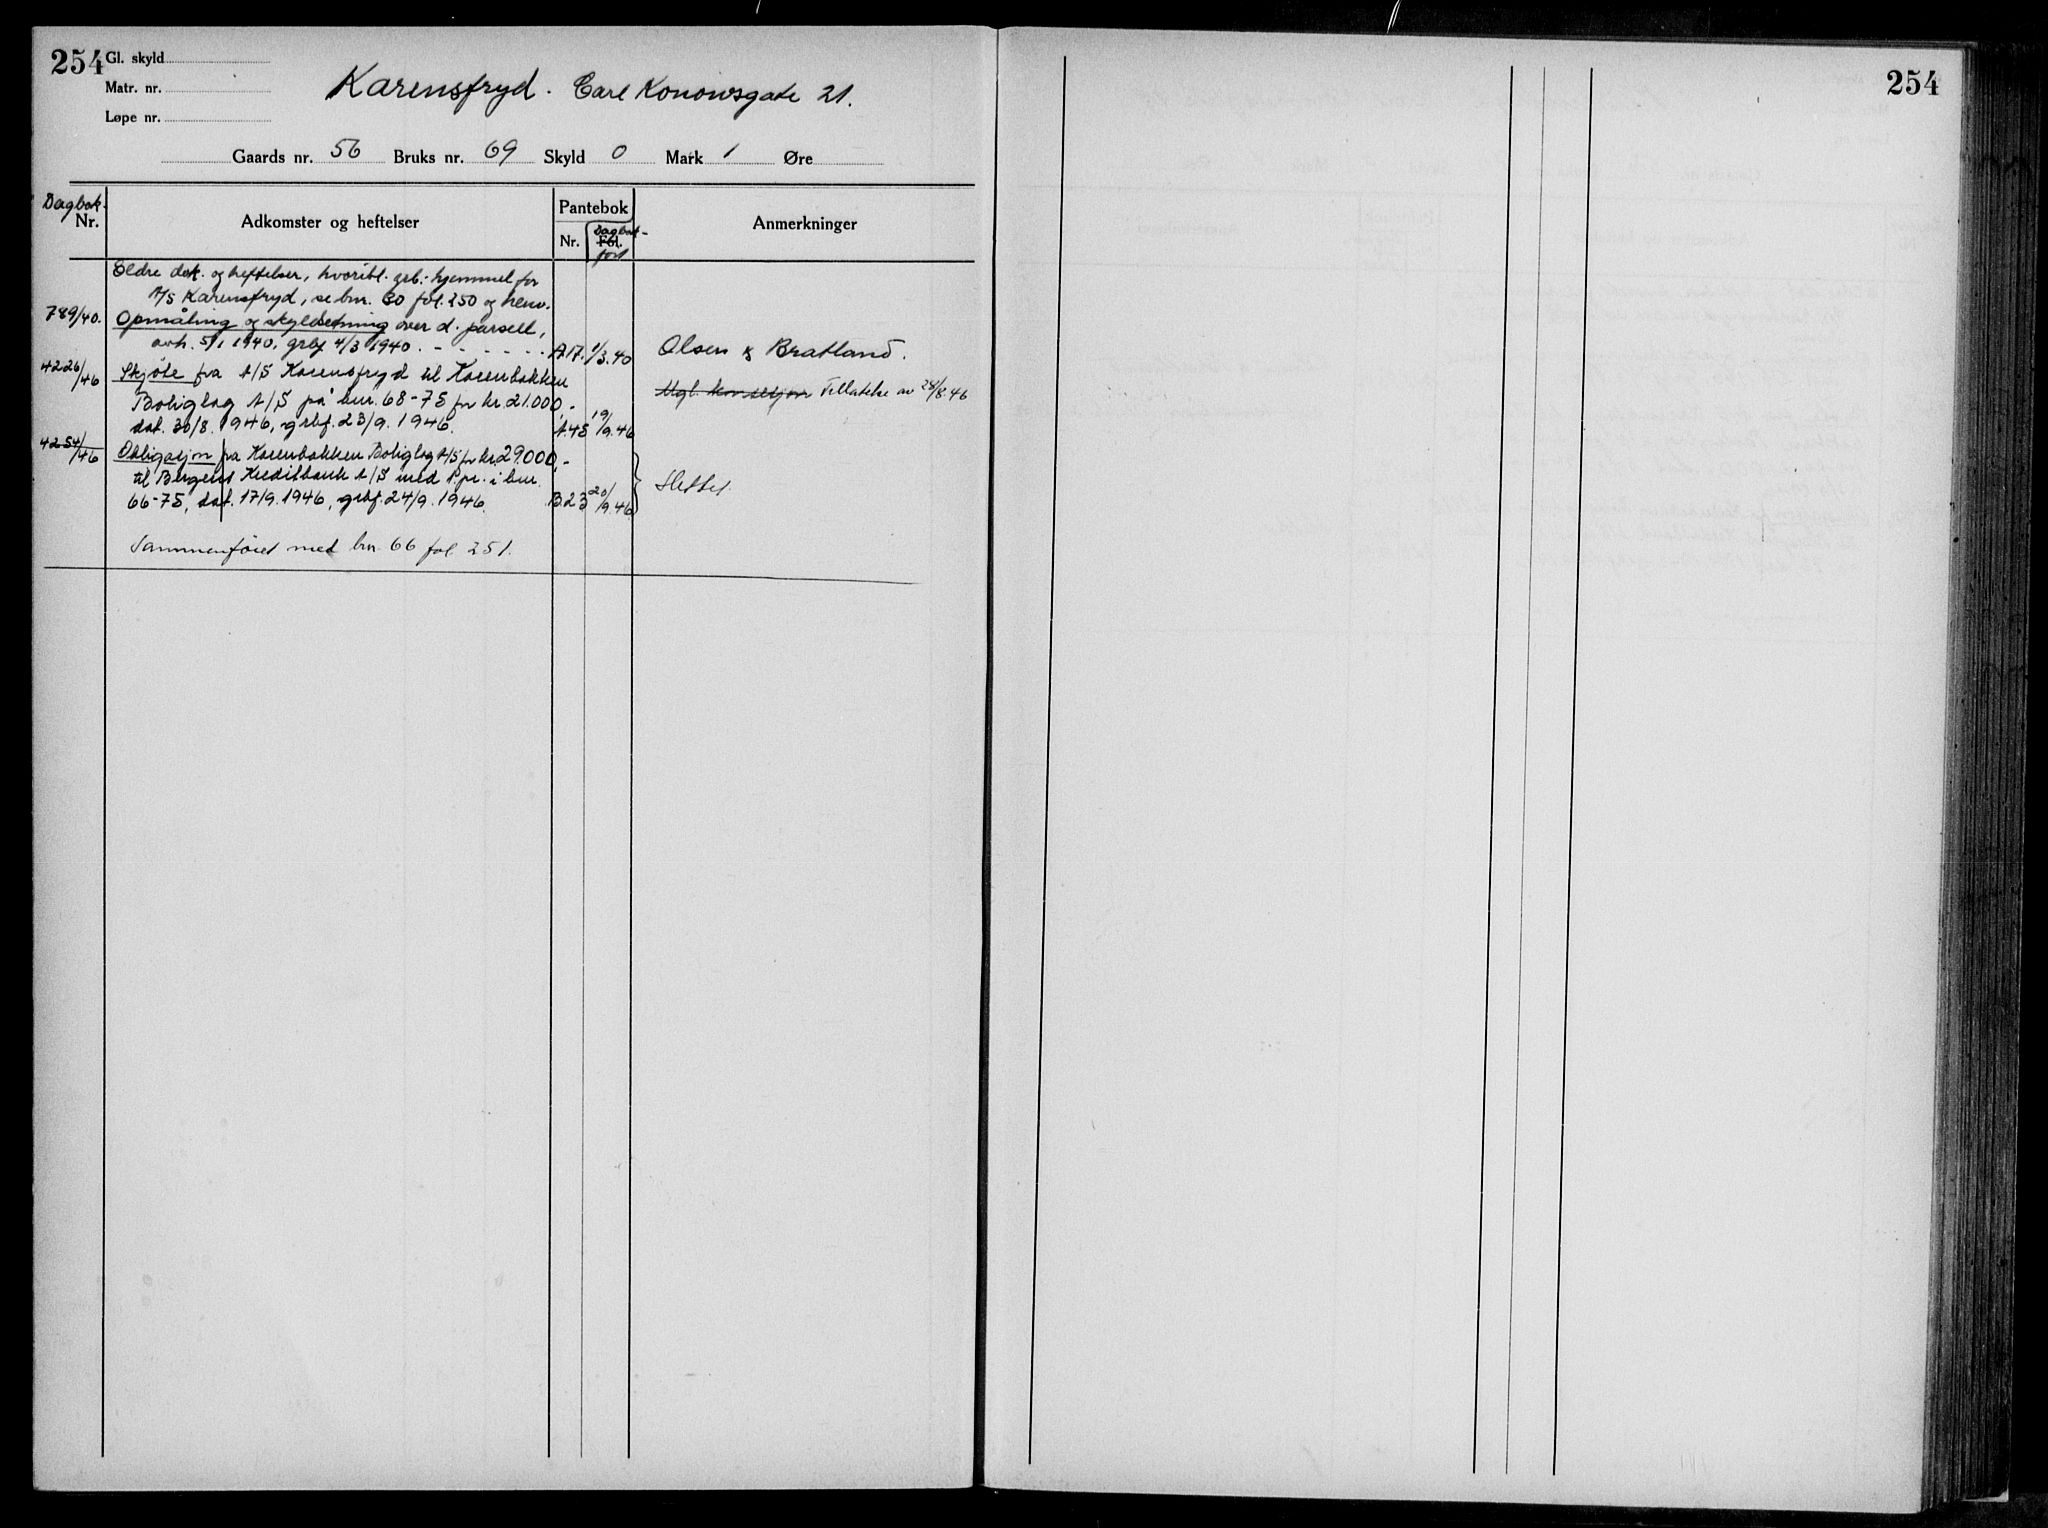 254
Gl. skyld
Matr. nr.
Løpe nr.
Karensfryd. Carl Konowsgate 21.
Gaards nr. 56 Bruks nr. 69 Skyld 0 Mark 1 Øre
Dagbok-
Nr.
Adkomster og heftelser
Pantebok
Nr.
Fol.
Dagbok-
ført
Anmerkninger
Eldre dok. og heftelser, hvoribl. grb.-hjemmel for
A/S Karensfryd, se bnr. 30 fol. 250 og henv.
789/40. Opmåling og skyldsetning over d. parsell,
avh. 5/1 1940, grbf 4/3 1940. - - - - - - A17. 1/3.40 Olsen & Bratland.
4226/46 Skjøte fra A/S Karensfryd til Karenbakken
Boliglag A/S på bnr. 68-75 for kr. 21.000,- Mgl. konsesjon Tillatelse av 28/8.46
dat. 30/8. 1946, grbf. 23/9. 1946. A.45 19/9.46
4254/46 Obligasjon fra Karenbakken Boliglag A/S for kr. 29.000,-
til Bergens Kreditbank A/S med 1.pr. i bnr.
66-75, dat. 17/9. 1946, grbf. 24/9. 1946. B.23 20/9.46 Slettet.
Sammenføiet med bnr. 66 fol. 251.
254